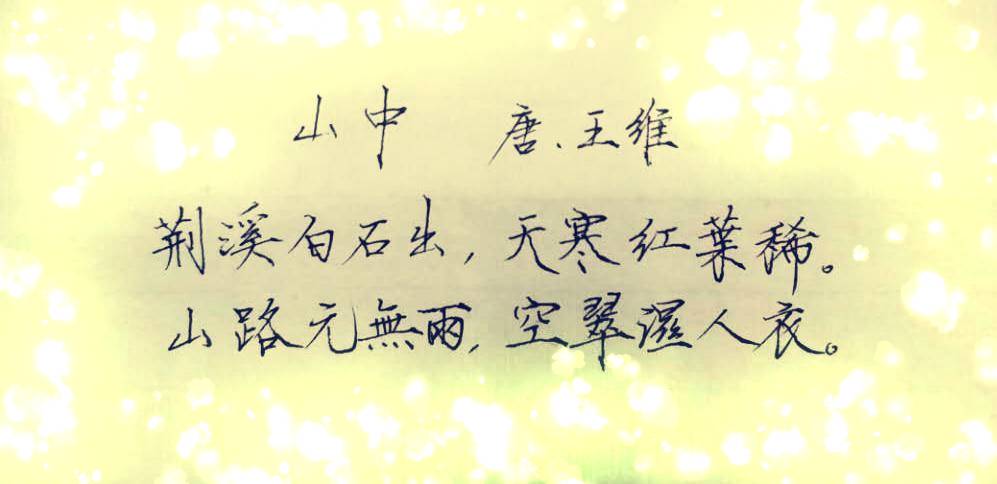 山中 唐.王維
荆溪白石出,天寒红葉稀。
山路元無雨,空翠濕人衣。